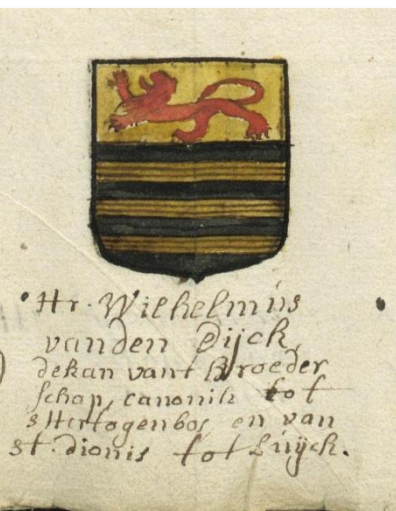 Hr. Wilhelmus
vanden Dijck
dekan vant Broeder
schap, canonik tot
sHertogenbos en van
st. dionis tot Luijck.